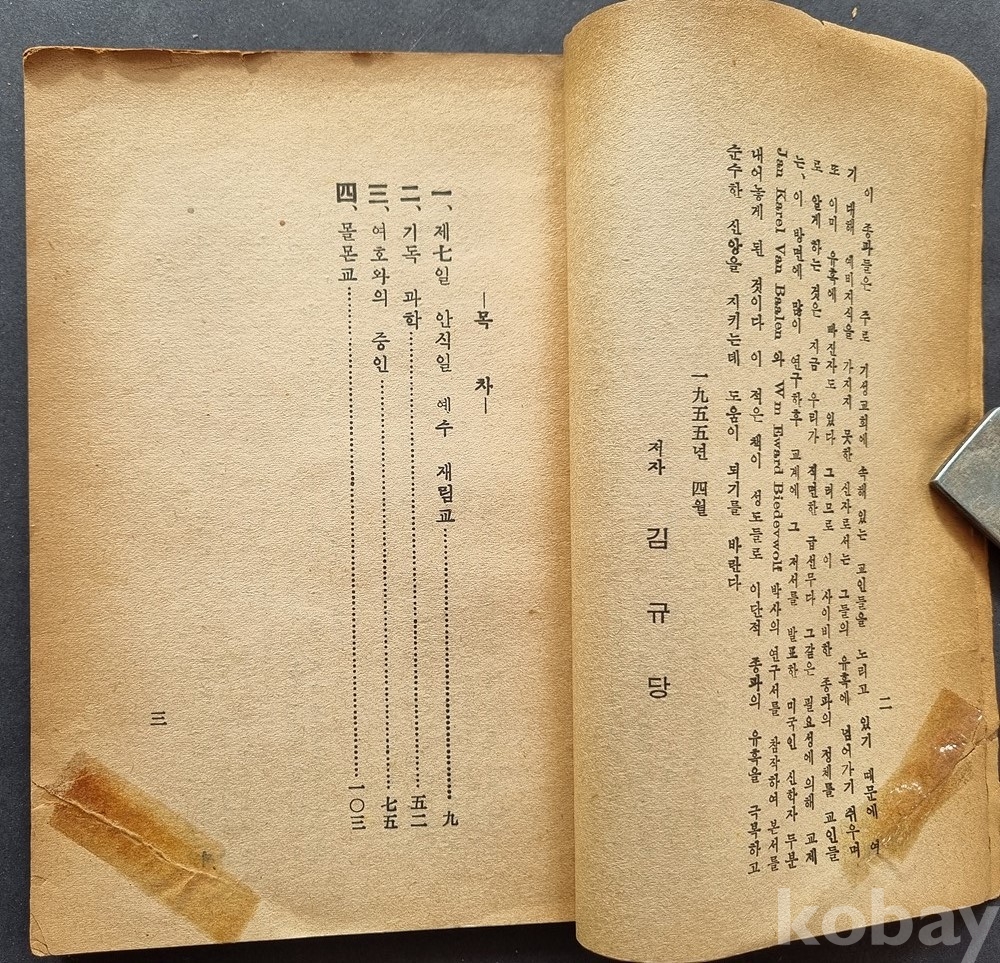 이 종파들은 주로 기성교회에 속해 있는 교인들을 노리고 있기 때문에 여
기 대해 예비지식을 가지지 못한 신자로서는 그들의 유혹에 넘어가기 쉬우며
또 이미 유혹에 빠진자도 있다 그러므로 이 사이비한 종파의 정체를 교인들
로 알게 하는 것은 지금 우리가 직면한 급선무다 그같은 필요성에 의해 교제
는, 이 방면에 많이 연구하후 교계에 그 저서를 발표한 미국인 신학자 두분
Jan Karel Van Baalen 와 Wm Eward Biedevwolf 박사의 연구서를 참작하여 본서를
내어놓게 된 것이다 이 적은 책이 성도들로 이단적 종파의 유혹을 극복하고
순수한 신앙을 지키는데 도움이 되기를 바란다
一九五五년 四월
저자 김규당
二
—목 차—
一、제七일 안식일 예수 재림교……九
二、기독 과학……五二
三、여호와의 증인……七五
四、몰몬교……一〇三
三
kobay